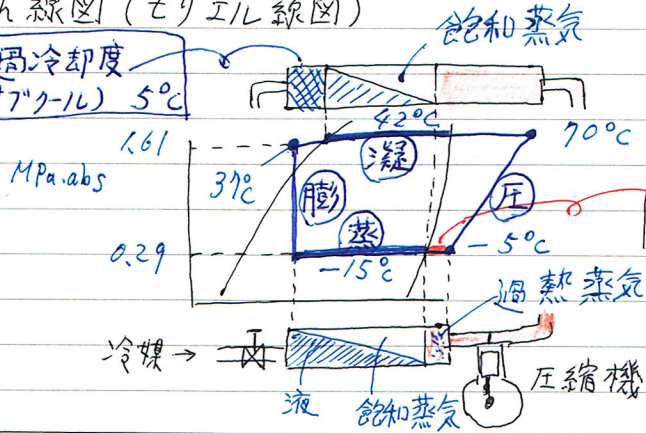 線図(モリエル線図)
飽和蒸気
過冷却度
ブクール) 5℃
42℃
70℃
1.61
MPa.abs
37℃
凝
膨
圧
蒸
0.29
-15℃
-5℃
過熱蒸気
冷媒→
液
飽和蒸気
圧縮機